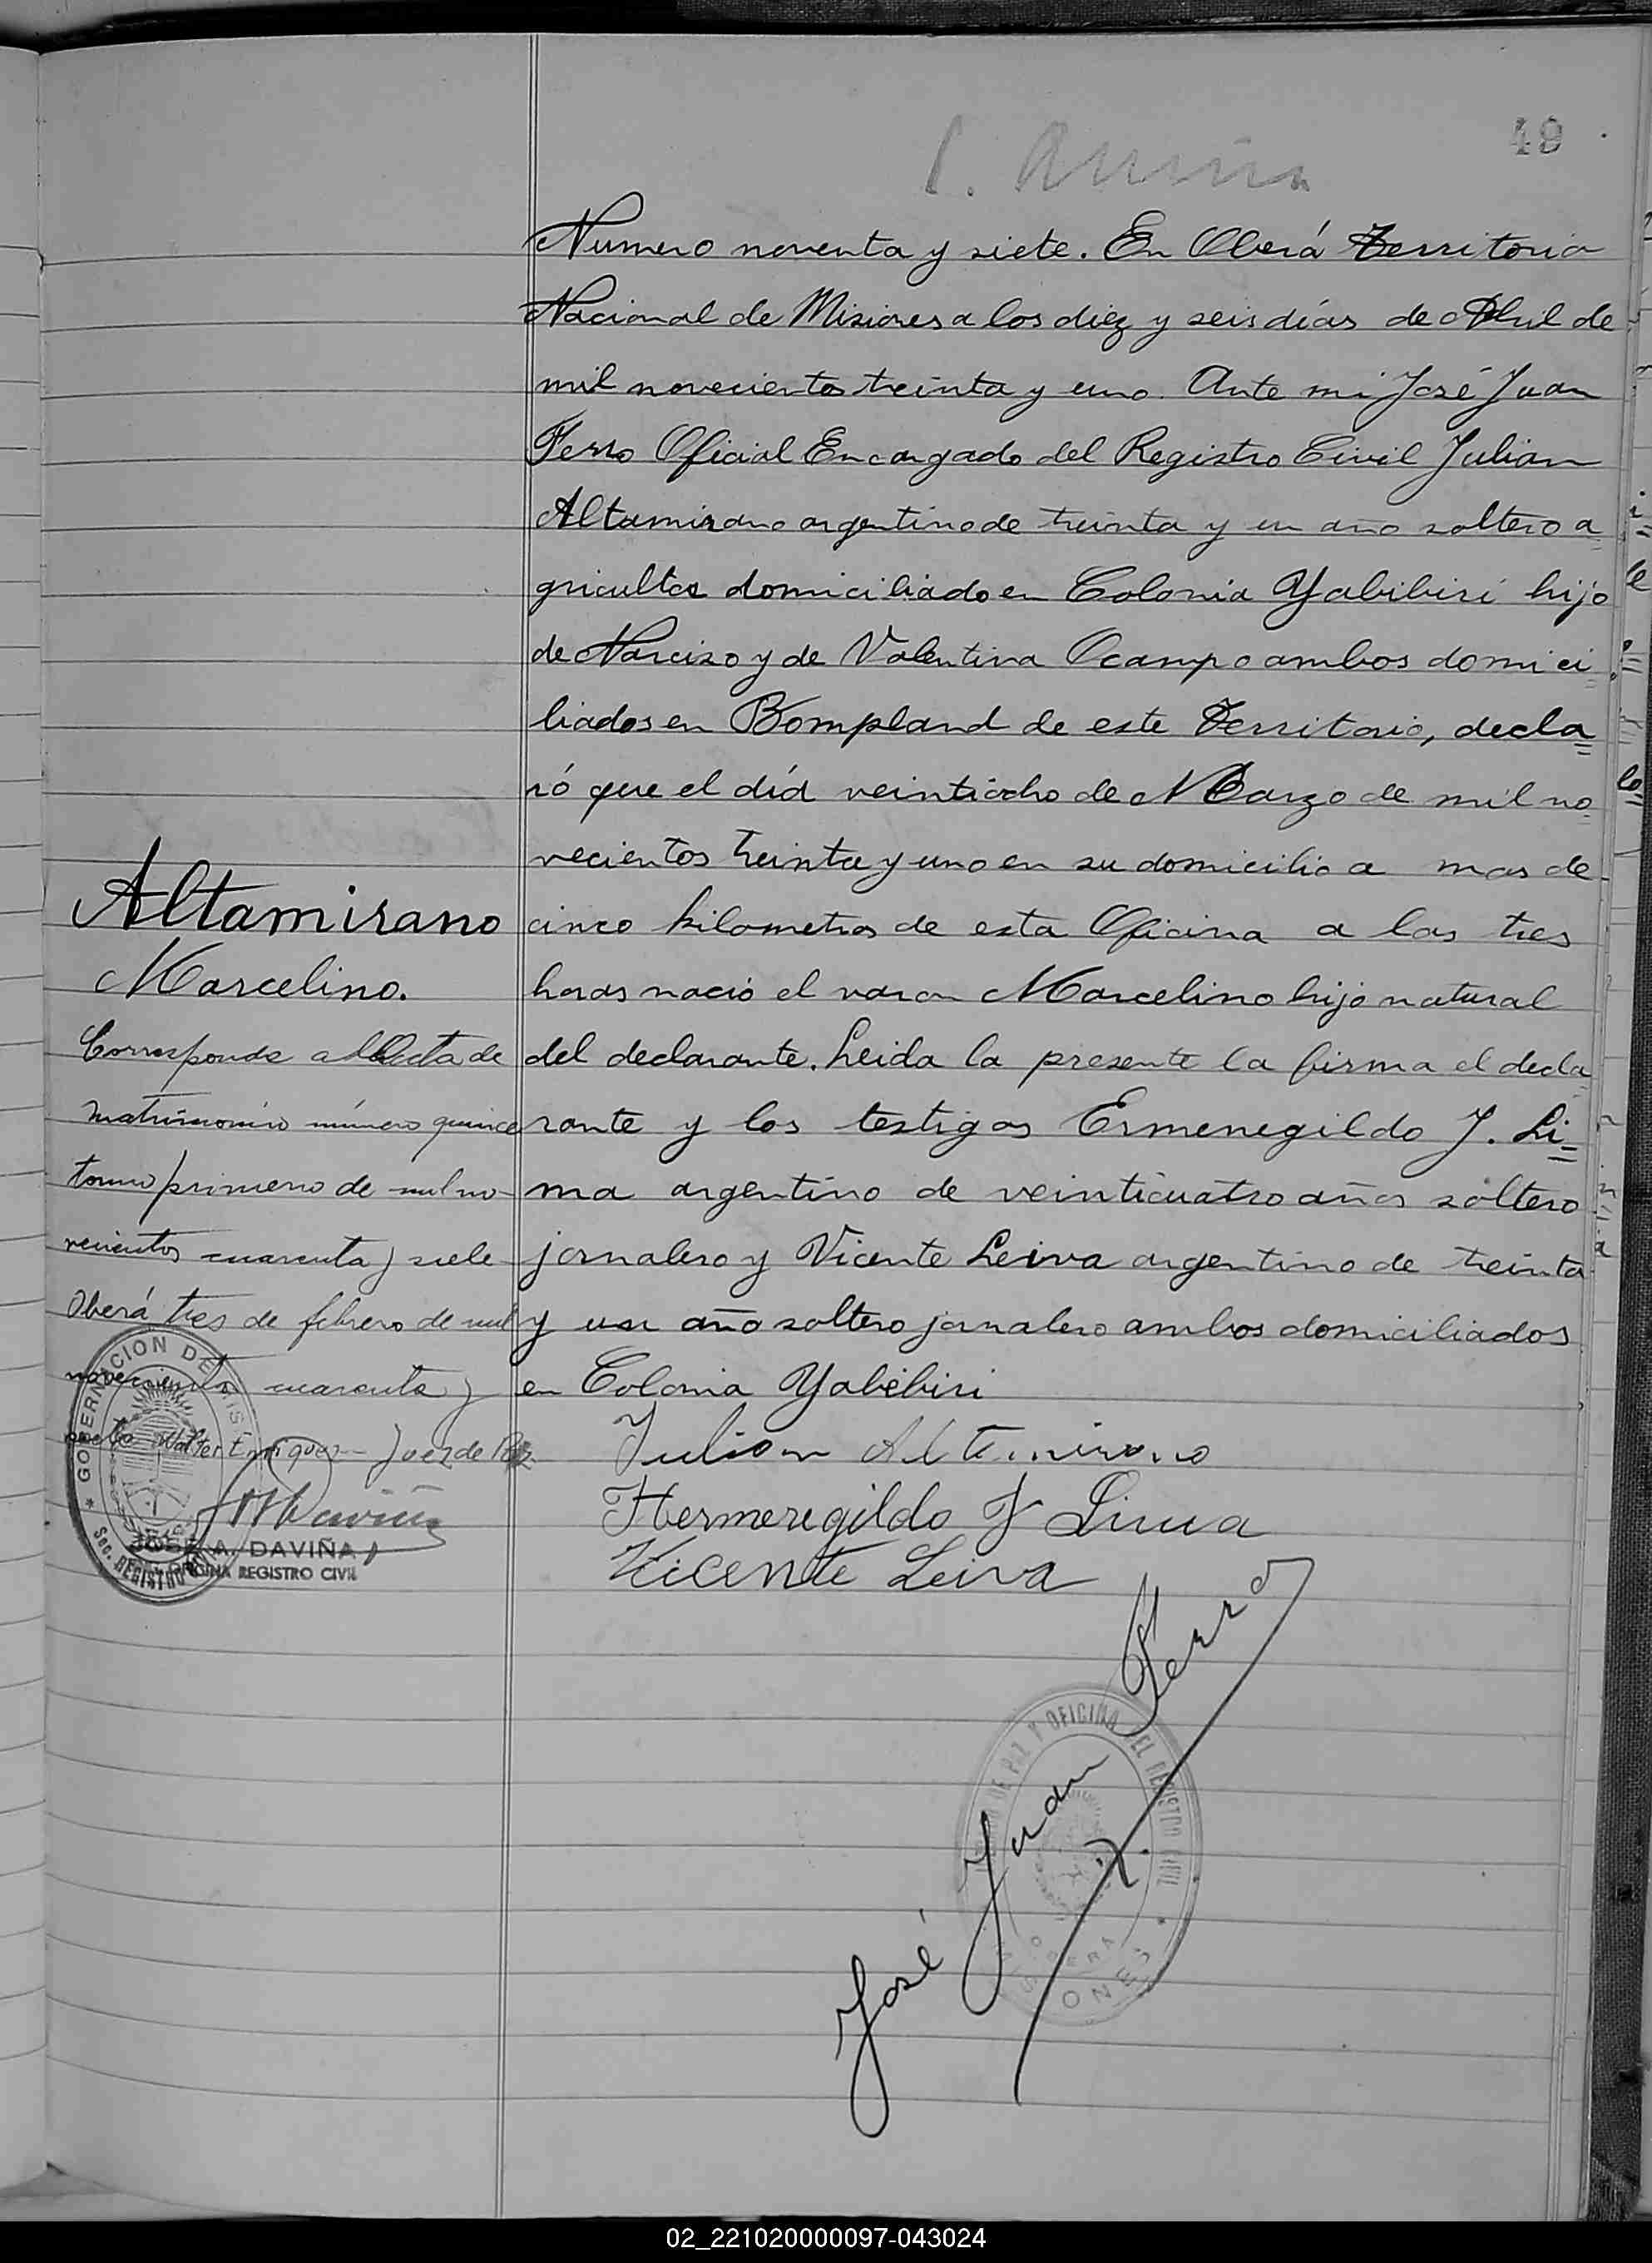 49
Numero noventa y siete. En Oberá Territorio
Nacional de Misiones a los diez y seis días de Abril de
mil novecientos treinta y uno. Ante mi José Juan
Ferro Oficial Encargado del Registro Civil Julian
Altamirano argentino de treinta y un año soltero a=
gricultor domiciliado en Colonia Yabibiri hijo
de Narcizo y de Valentina Ocampo ambos domici=
liados en Bompland de este Territorio, decla=
ró que el día veintiocho de Marzo de mil no=
vecientos treinta y uno en su domicilio a mas de
cinco kilometros de esta Oficina a las tres
horas nació el varon Marcelino hijo natural
del declarante. Leida la presente la firma el decla=
rante y los testigos Ermenegildo J. Li=
ma argentino de veinticuatro años soltero
jornalero y Vicente Leiva argentino de treinta
y un año soltero jornalero ambos domiciliados
en Colonia Yabebiri
Julian Altamirano
Hermeregildo J Lima
Vicente Leiva
José Juan Ferro
Altamirano
Marcelino.
Corresponde al Acta de
matrimonio número quince
tomo primero de mil no-
vecientos cuarenta y siete
Oberá tres de febrero de mil
novecientos cuarenta y
siete Walter Enriquez - Juez de Paz
GOBERNACION DE MISIONES
Sec. REGISTRO CIVIL
JOSE A. DAVIÑA
OFICINA REGISTRO CIVIL
JUZGADO DE PAZ Y OFICINA DEL REGISTRO CIVIL
OBERA
MISIONES
02_221020000097-043024